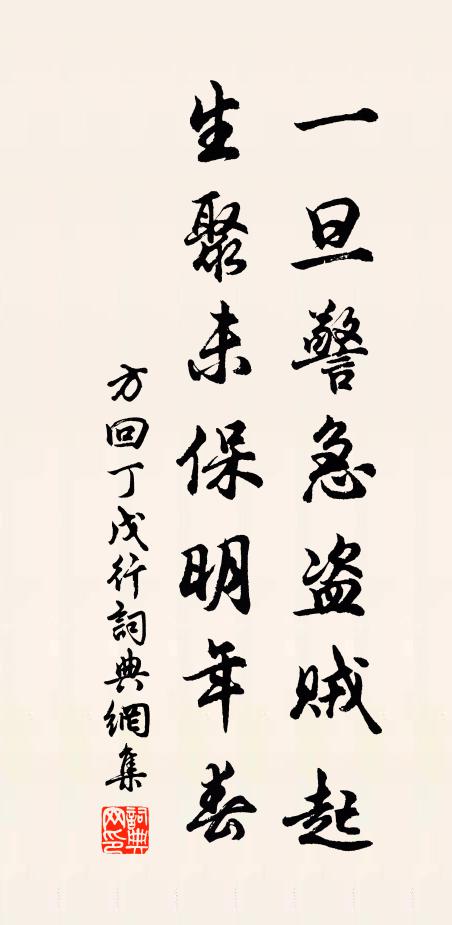 一旦警急盗贼起
生聚未保明年春
方回丁戊行詞典網集
詞典網印